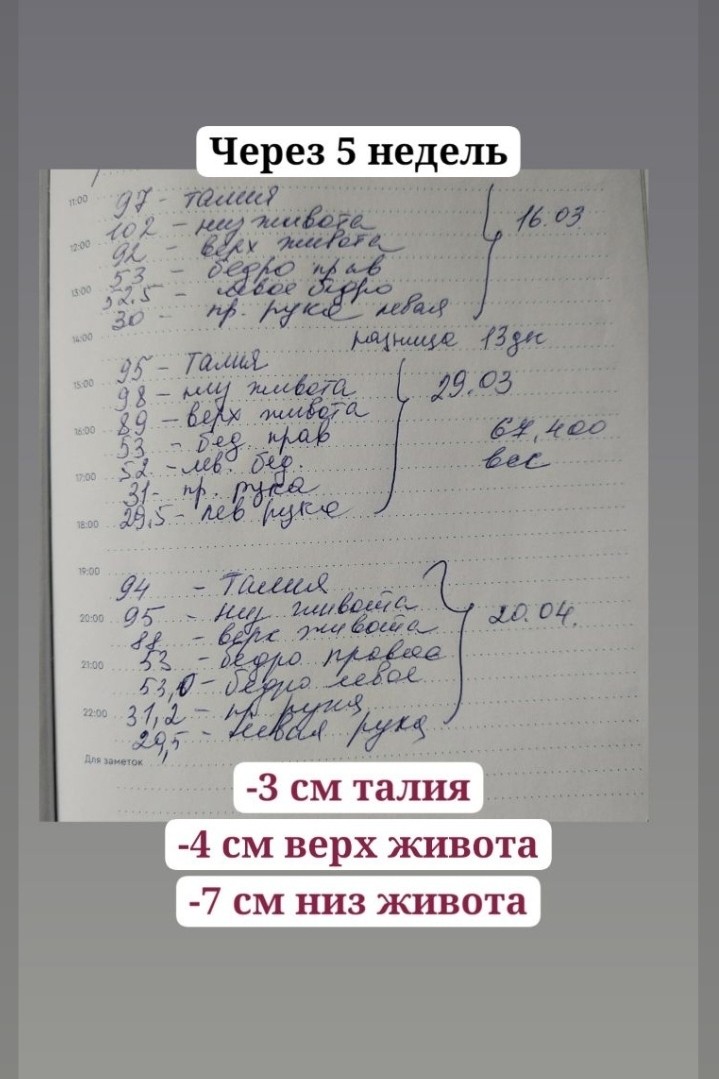 Через 5 недель
11:00
97 - талия
102 - низ живота
12:00
92 - верх живота
16.03
53 - бедро прав
13:00
52.5 - левое бедро
30 - пр. рука левая
14:00
разница 13дн
95 - Талия
15:00
98 - низ живота
29.03
89 - верх живота
16:00
53 - бед. прав
67,400
52 - лев. бед.
вес
17:00
31 - пр. рука
29,5 - лев рука
18:00
19:00
94 - Талия
20:00
95 - низ живота
20.04.
88 - верх живота
53 - бедро правое
21:00
53,0 - бедро левое
31,2 - пр. рука
22:00
29,5 - левая рука
Для заметок
-3 см талия
-4 см верх живота
-7 см низ живота